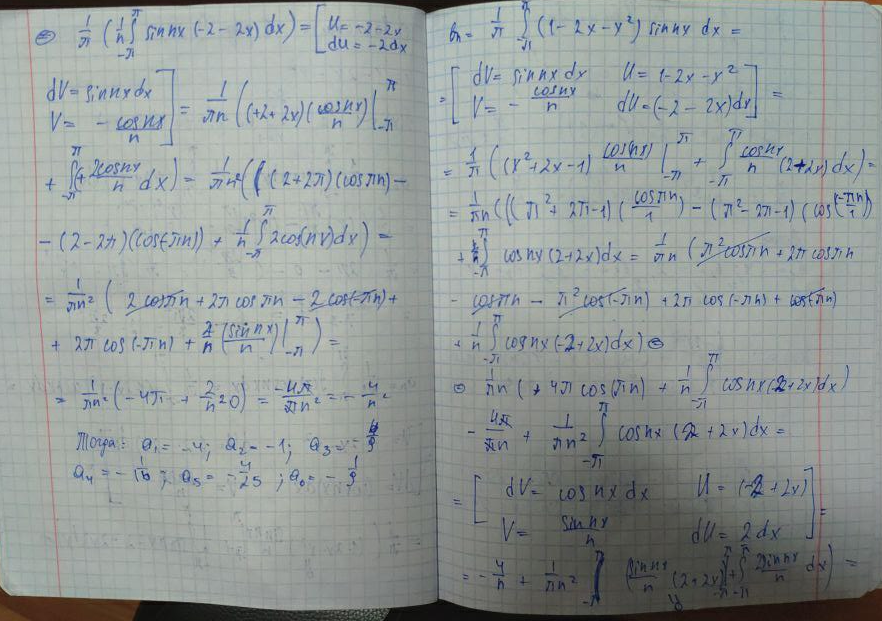 ⊜ 1/π (1/n ∫_{-π}^{π} sin nx (-2 - 2x) dx) = [U = -2-2x
dU = -2dx
dV = sin nx dx
V = - cos nx/n ] = 1/πn ((+2+2x)(cos nx/n)|_{-π}^{π}
+ ∫_{-π}^{π} (+ 2cos nx/n dx) = 1/πn² (((2+2π)(cos πn) -
- (2-2π)(cos(-πn)) + 1/n ∫_{-π}^{π} 2cos(nx)dx) =
= 1/πn² (2 cos πn + 2π cos πn - 2 cos(-πn) +
+ 2π cos(-πn) + 2/n (sin nx)|_{-π}^{π}) =
= 1/πn² (-4π + 2/n² 0) = -4π/πn² = - 4/n²
Тогда: a₁ = -4; a₂ = -1; a₃ = - 4/9
a₄ = - 1/16; a₅ = - 4/25; a₆ = - 1/9
bn = 1/π ∫_{-π}^{π} (1-2x-x²) sin nx dx =
= [ dV = sin nx dx U = 1-2x-x²
V = - cos nx/n dU = (-2-2x)dx ] =
= 1/π ((x²+2x-1) cos(nx)/n |_{-π}^{π} + ∫_{-π}^{π} cos nx/n (2+2x)dx) =
= 1/πn (((π²+2π-1)(cos πn/1) - (π²-2π-1)(cos(-πn/1))
+ 1/n ∫_{-π}^{π} cos nx (2+2x)dx = 1/πn (π² cos πn + 2π cos πn
- cos πn - π² cos(-πn) + 2π cos(-πn) + cos(-πn)
+ 1/n ∫_{-π}^{π} cos nx (-2+2x)dx) ⊜
⊜ 1/πn (+ 4π cos(πn) + 1/n ∫_{-π}^{π} cos nx (2+2x)dx)
- 4π/πn + 1/πn² ∫_{-π}^{π} cos nx (2+2x)dx =
= [ dV = cos nx dx U = (-2+2x)
V = sin nx/n dU = 2dx ] =
= - 4/n + 1/πn² (sin nx/n (2+2x)|_{-π}^{π} + ∫_{-π}^{π} 2sin nx/n dx) =